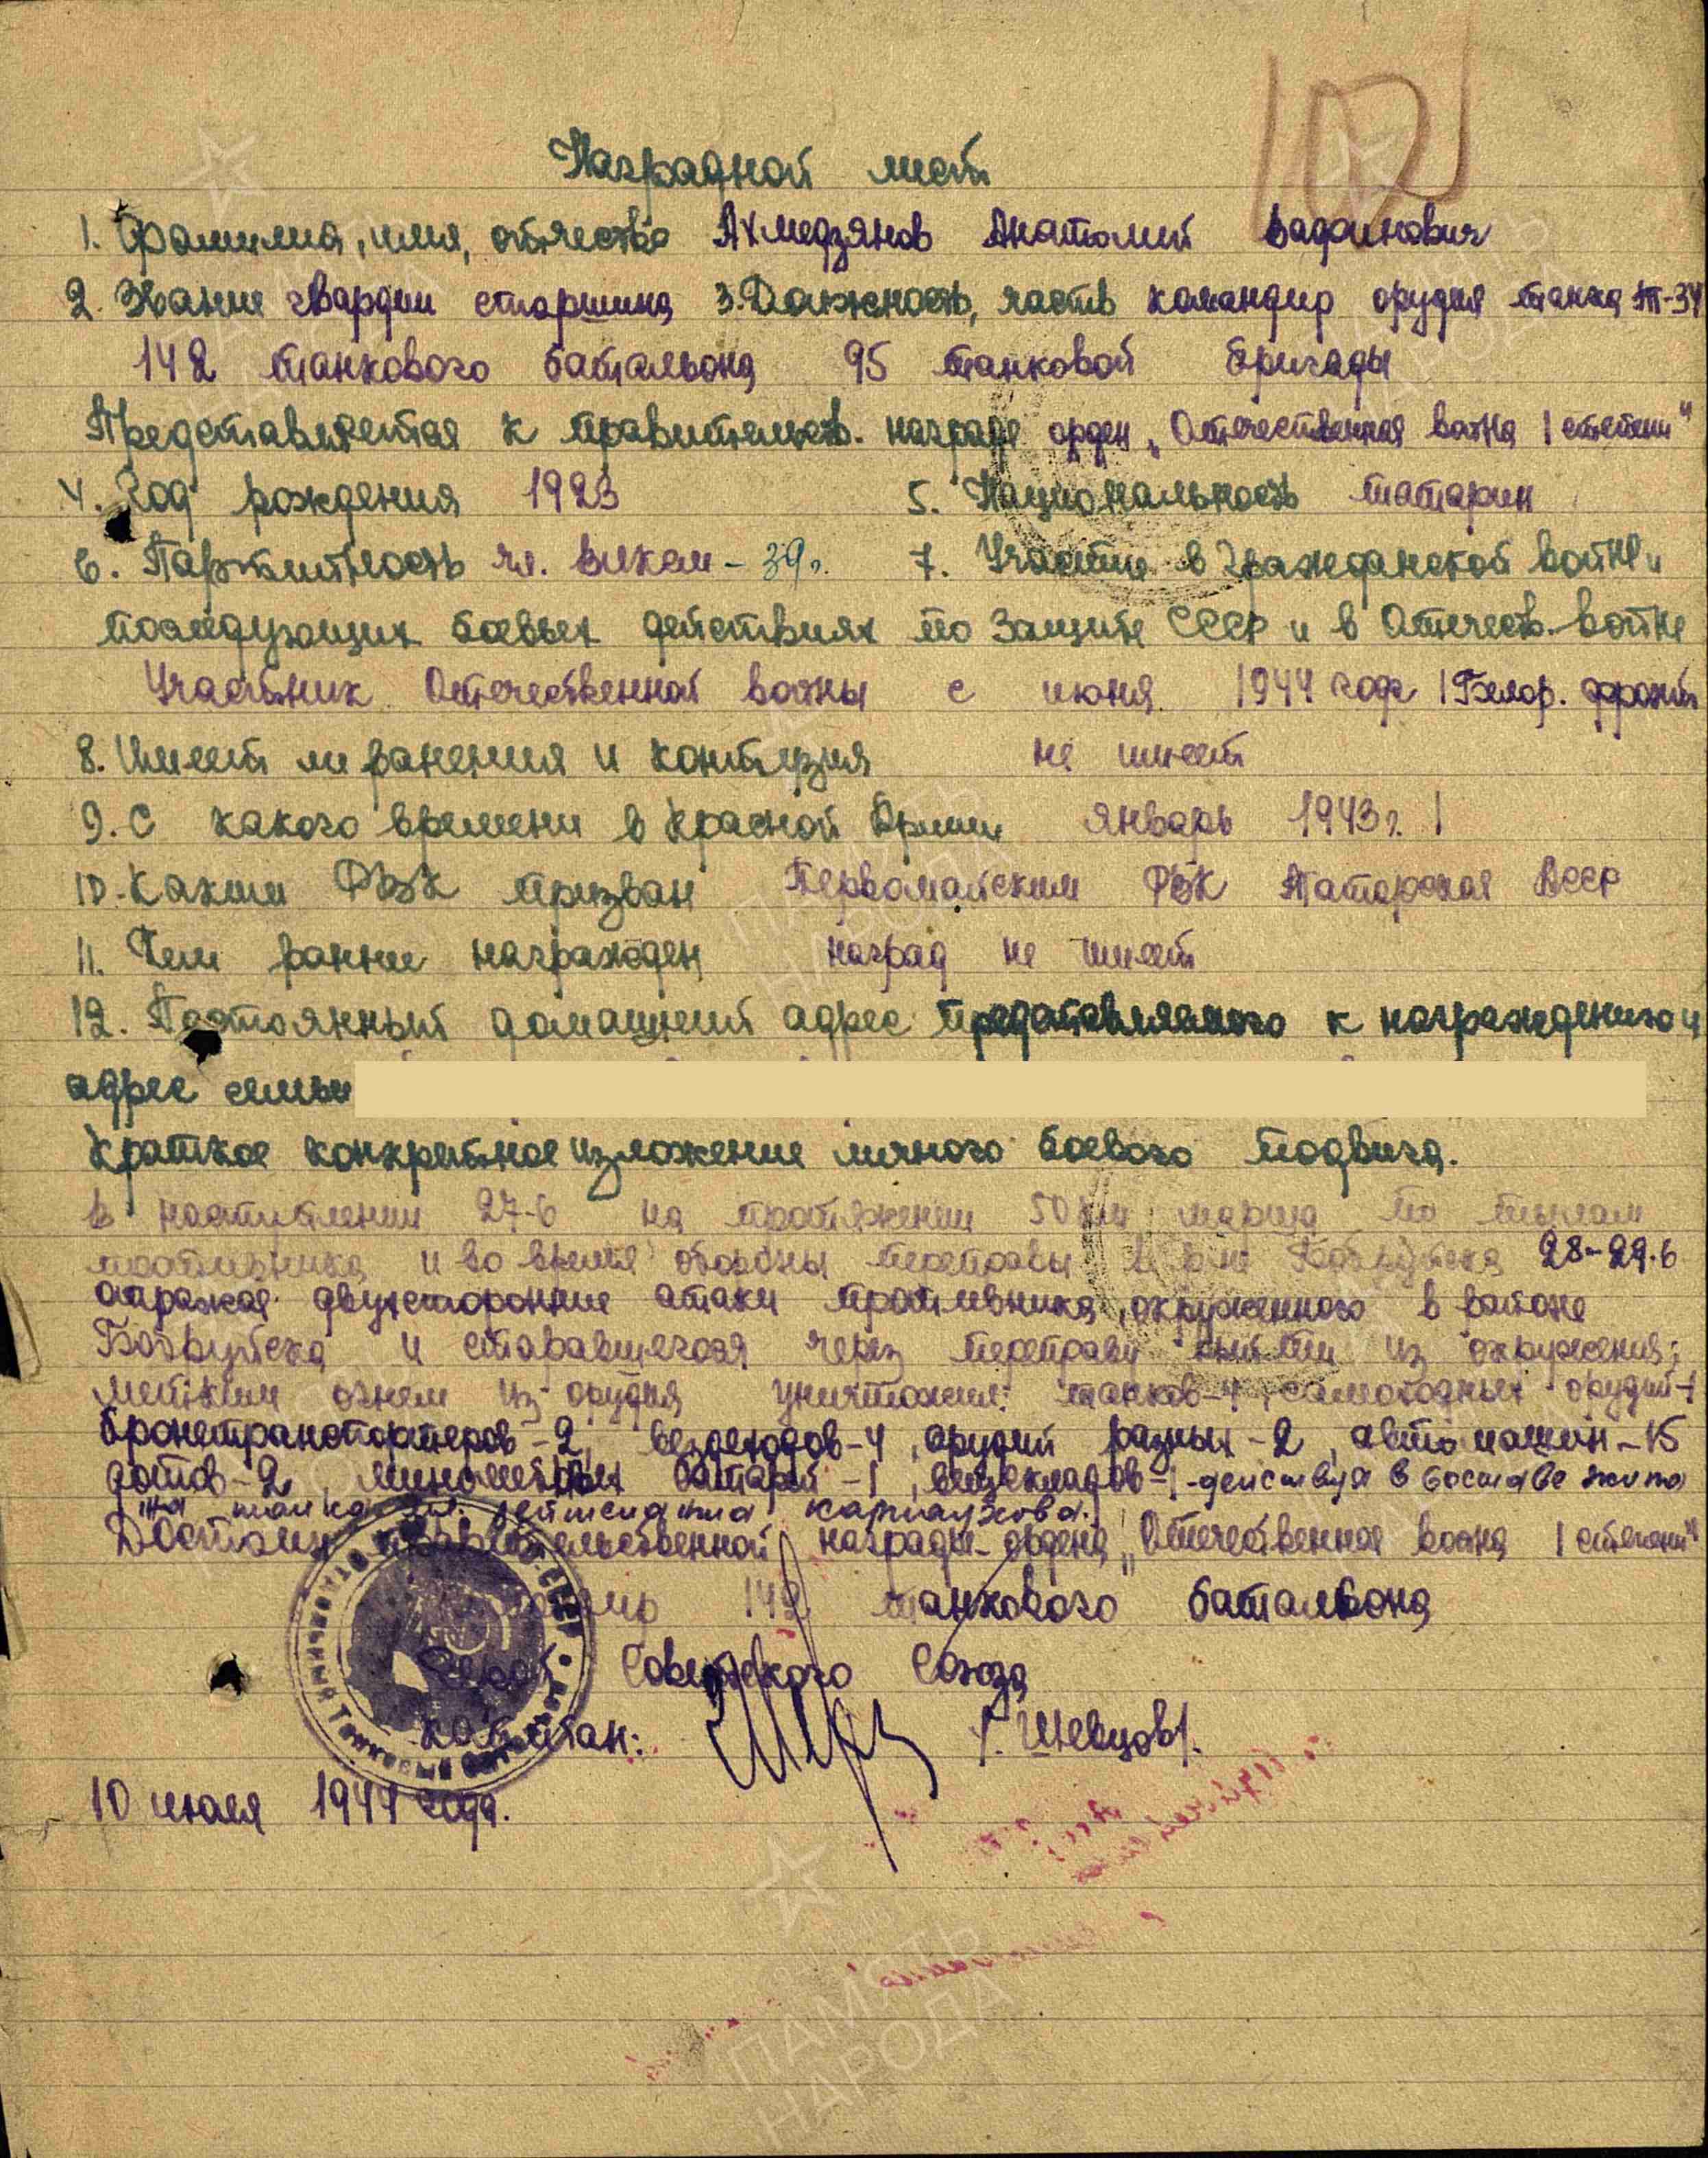 102
Наградной лист
1. Фамилия, имя, отчество Ахмедзянов Анатолий
2. Звание гвардии старшина 3. Должность, часть командир орудия танка Т-34
142 танкового батальона 95 танковой бригады
Представляется к правительств. награде орден „Отечественная война I степени"
4. Год рождения 1923 5. Национальность татарин
6. Партийность чл. ВЛКСМ - 39г. 7. Участие в Гражданской войне и
последующих боевых действиях по защите СССР и в Отечеств. войне
Участник Отечественной войны с июня 1944 года 1 Белор. фронт
8. Имеет ли ранения и контузия не имеет
9. С какого времени в Красной Армии январь 1943г.
10. Каким РВК призван Первомайским РВК Татарская АССР
11. Чем ранее награжден наград не имеет
12. Постоянный домашний адрес представляемого к награждению и
адрес семьи
Краткое конкретное изложение личного боевого подвига.
В наступлении 27-6 на протяжении 50 км марша по тылам
противника и во время обороны переправы в р-не Бобруйска 28-29.6
отражая двухсторонние атаки противника, окруженного в районе
Бобруйска и старавшегося через переправу выйти из окружения;
метким огнем из орудия уничтожил: танков-4, самоходных орудий-1
бронетранспортеров-2, вездеходов-4, орудий разных-2, автомашин-15
дотов-2, минометных батарей-1, вещскладов-1-действуя в составе экипа
жа танка мл. лейтенанта
Достоин правительственной награды-ордена „Отечественная война I степени"
142 танкового батальона
Герой Советского Союза
капитан: /Шевцов/.
10 июля 1944 года.
ПАМЯТЬ
НАРОДА